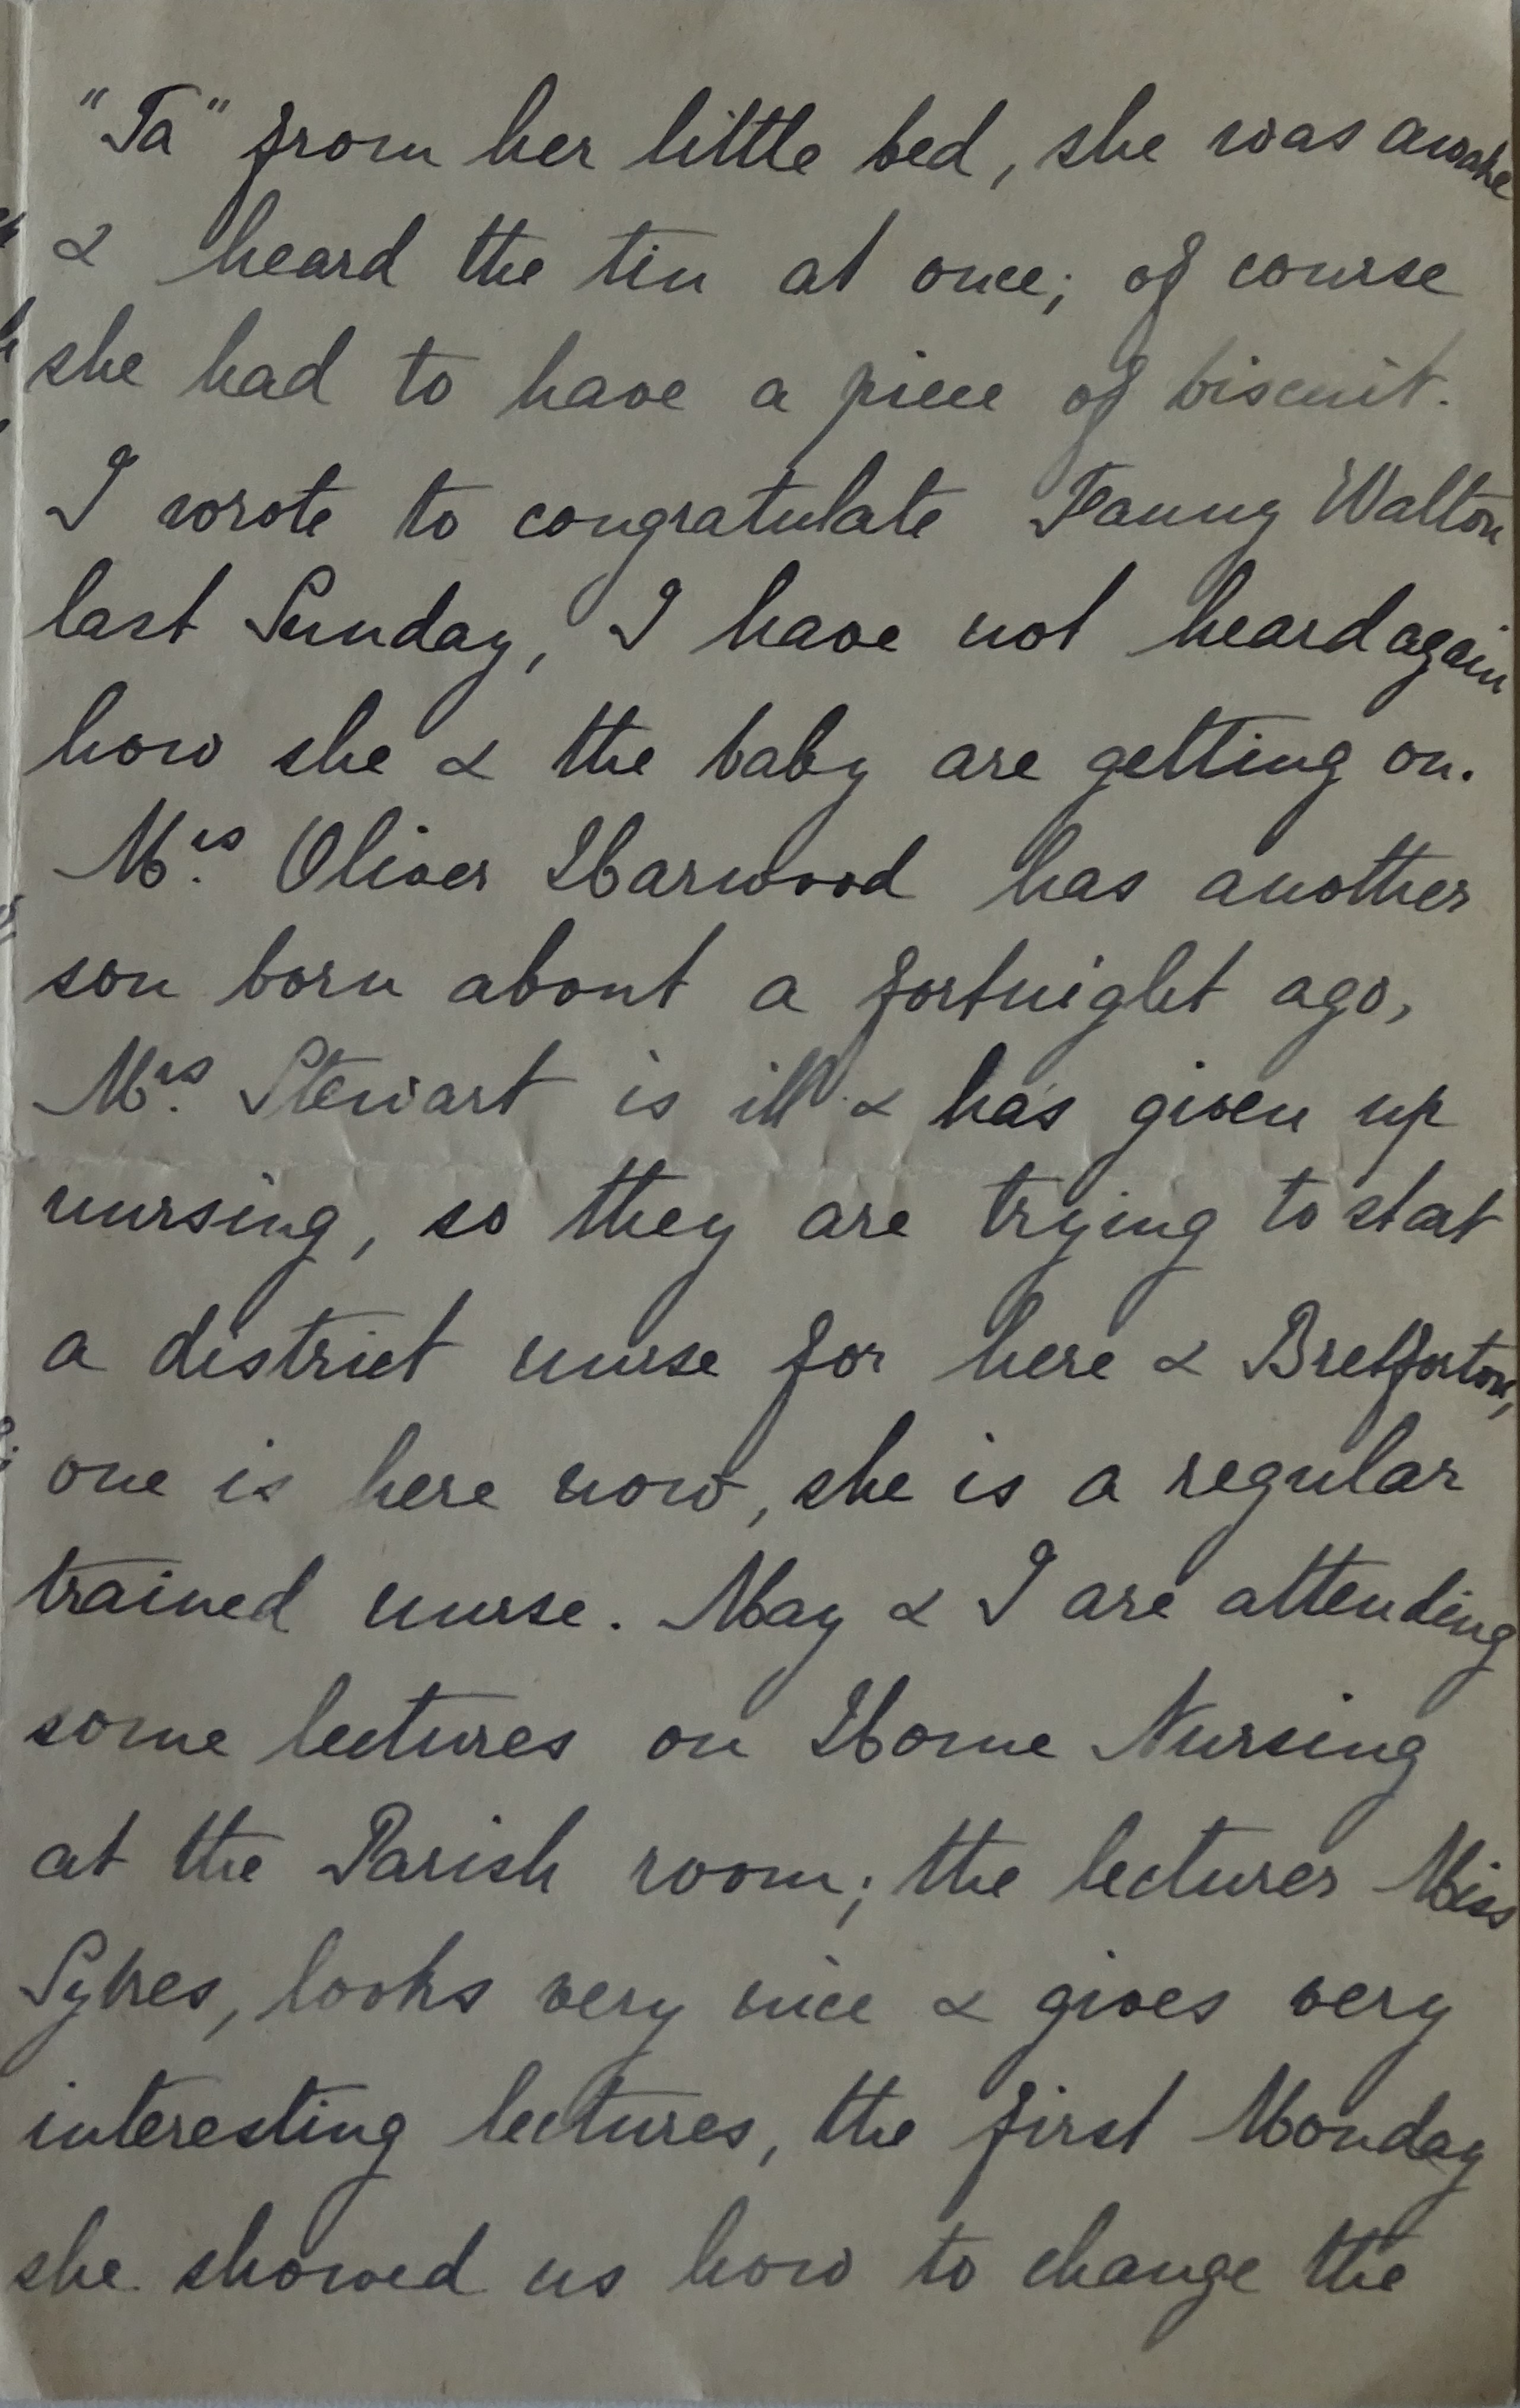 "Ta" from her little bed, she was awake
& heard the tin at once; of course
she had to have a piece of biscuit.
I wrote to congratulate Fanny Walton
last Sunday, I have not heard again
how she & the baby are getting on.
Mrs. Oliver Harwood has another
son born about a fortnight ago,
Mrs. Stewart is ill & has given up
nursing, so they are trying to start
a district nurse for here & Bretforton,
one is here now, she is a regular
trained nurse. May & I are attending
some lectures on Home Nursing
at the Parish room; the lecturer Miss
Sykes, looks very nice & gives very
interesting lectures, the first Monday
she showed us how to change the